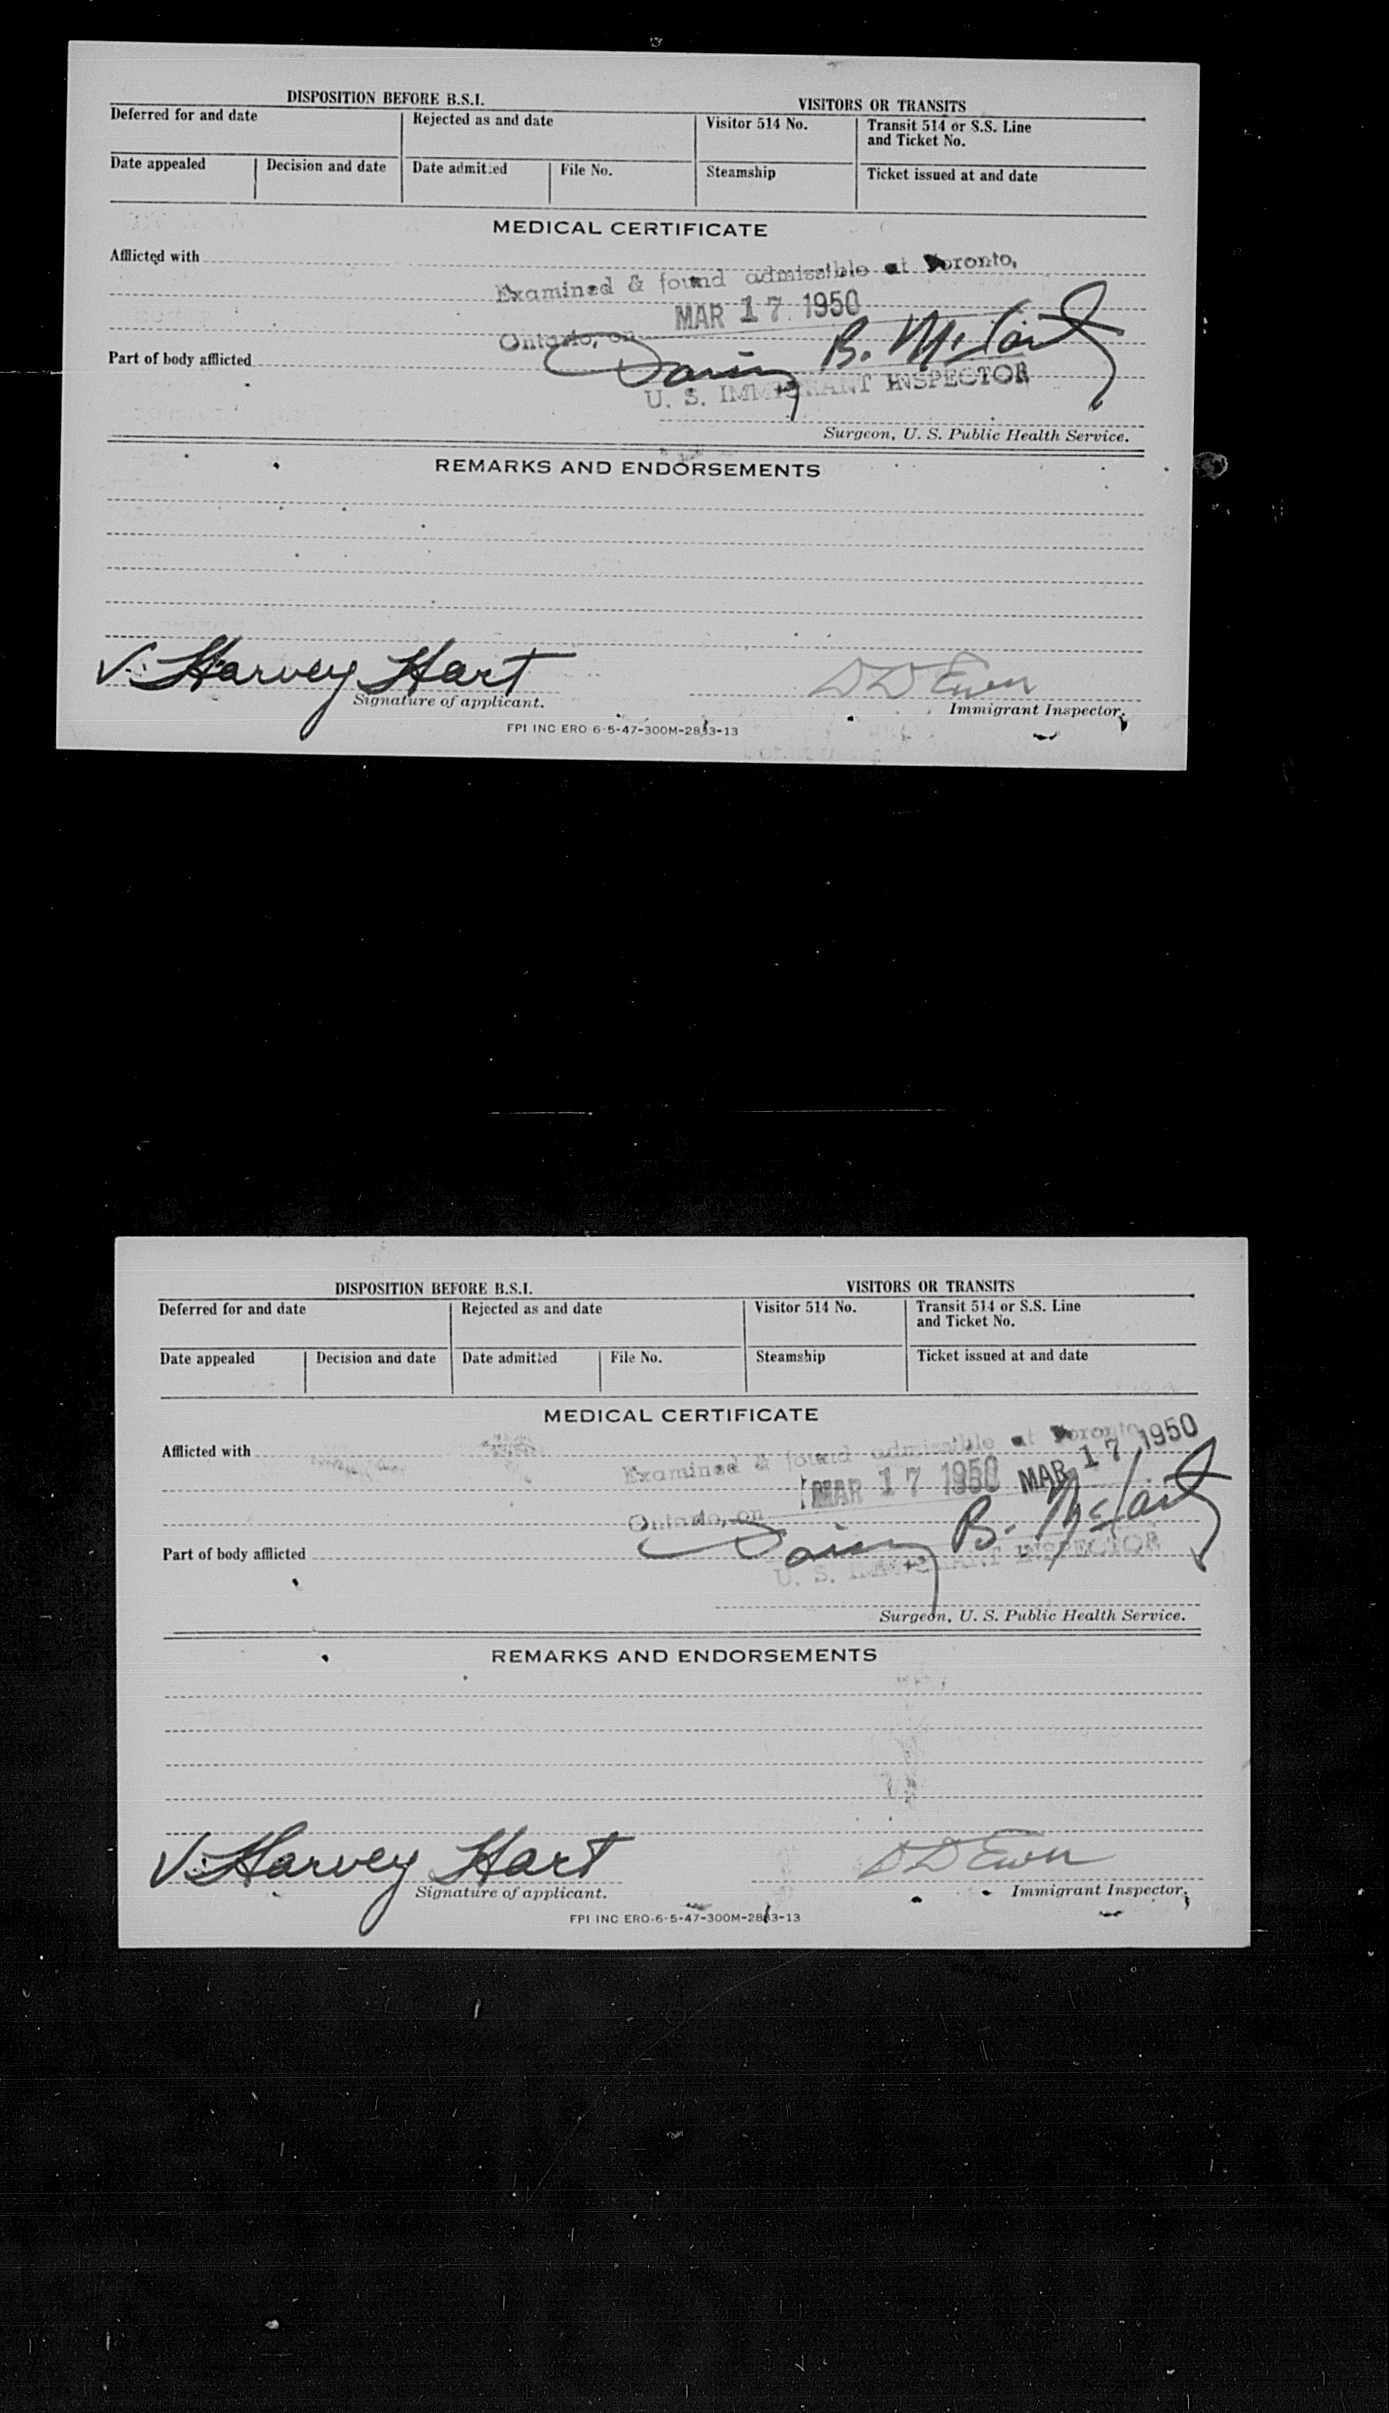 DISPOSITION BEFORE B.S.I. VISITORS OR TRANSITS
Deferred for and date Rejected as and date Visitor 514 No. Transit 514 or S.S. Line
and Ticket No.
Date appealed Decision and date Date admitted File No. Steamship Ticket issued at and date
MEDICAL CERTIFICATE
Afflicted with
Examined & found admissible at Toronto,
MAR 17 1950
Ontario, on
B. McTart
Part of body afflicted
U. S. IMMIGRANT INSPECTOR
Surgeon, U. S. Public Health Service.
REMARKS AND ENDORSEMENTS
V. Harvey Hart D D Ewen
Signature of applicant. Immigrant Inspector.
FPI INC ERO 6-5-47-300M-2883-13
DISPOSITION BEFORE B.S.I. VISITORS OR TRANSITS
Deferred for and date Rejected as and date Visitor 514 No. Transit 514 or S.S. Line
and Ticket No.
Date appealed Decision and date Date admitted File No. Steamship Ticket issued at and date
MEDICAL CERTIFICATE
Afflicted with
Examined & found admissible at Toronto
MAR 17 1950 MAR 17 1950
Ontario, on
B. McTart
Part of body afflicted
U. S. IMMIGRANT INSPECTOR
Surgeon, U. S. Public Health Service.
REMARKS AND ENDORSEMENTS
V. Harvey Hart D D Ewen
Signature of applicant. Immigrant Inspector.
FPI INC ERO-6-5-47-300M-2883-13